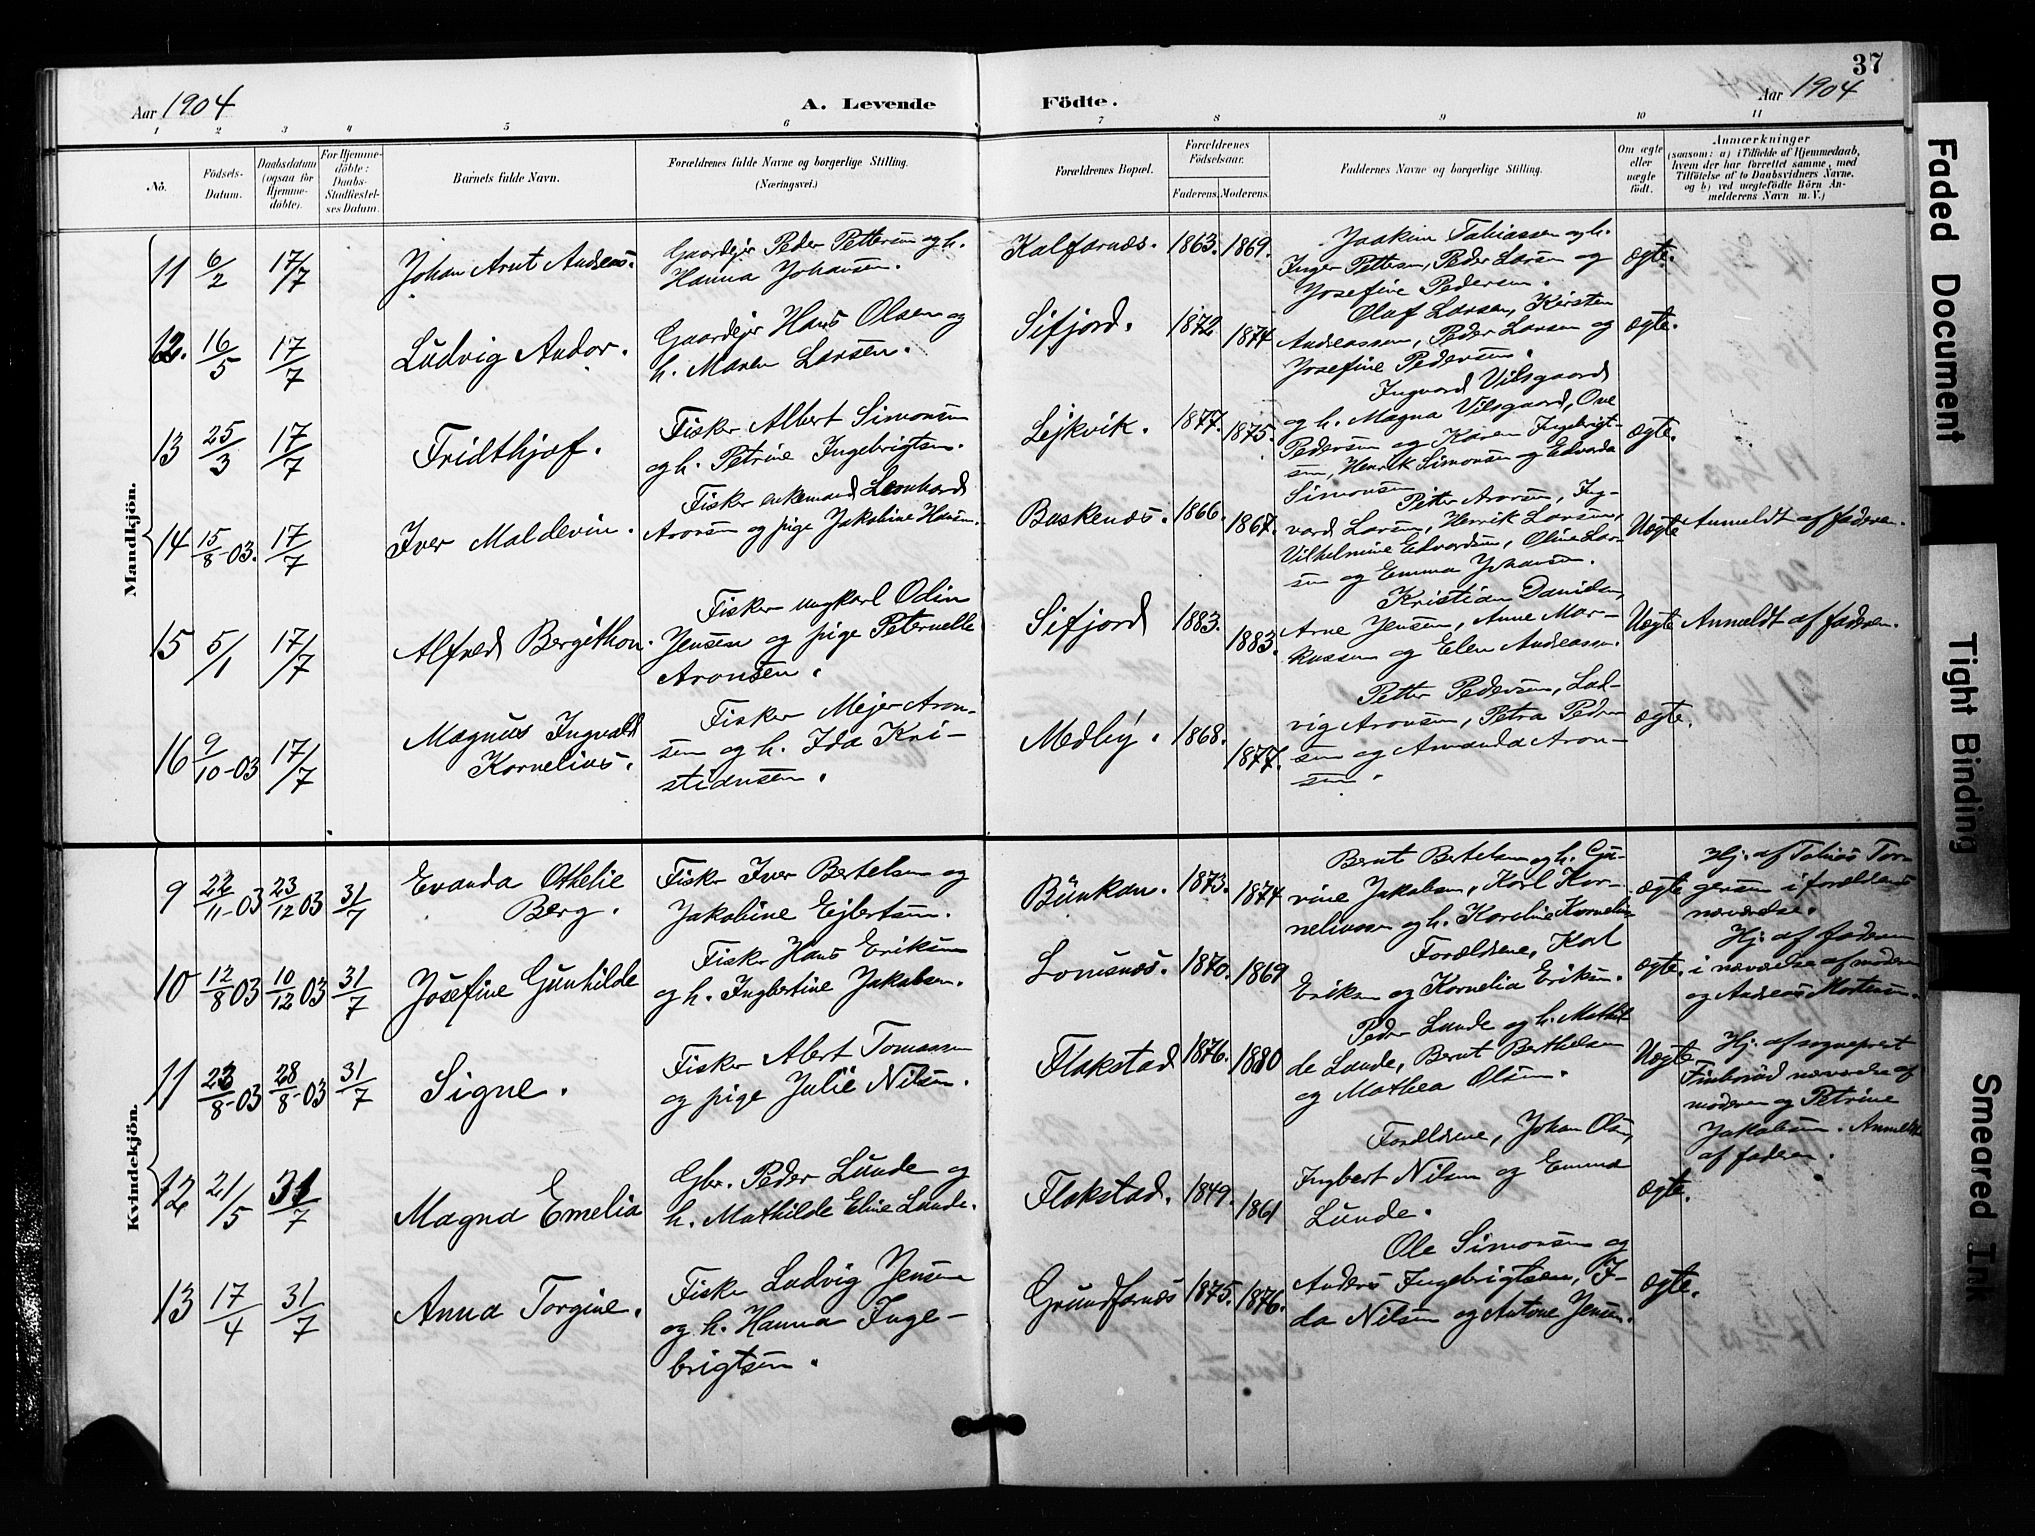 37
Aar 1904
A. Levende
Födte.
Aar 1904
1 2 3 4 5 6 7 8 9 10 11
No.
Födsels-
Datum.
Daabsdatum
(ogsaa for
Hjemme-
döbte).
For Hjemme-
döbte:
Daabs-
Stadfæstel-
ses Datum.
Barnets fulde Navn.
Forældrenes fulde Navne og borgerlige Stilling.
(Næringsvei.)
Forældrenes Bopæl.
Forældrenes
Födselsaar.
Faderens. Moderens.
Faddernes Navne og borgerlige Stilling.
Om ægte
eller
uægte
födt.
Anmærkninger
(saasom: a) i Tilfælde af Hjemmedaab,
hvem der har forrettet samme, med
Tilföielse af to Daabsvidners Navne,
og b) ved uægtefödte Börn An-
melderens Navn m. V.)
Mandkjön.
11 6/2 17/7
Johan Arnt Andreas.
Gaardejer Peder Pettersen og h.
Hanna Johansen.
Kalfarnæs. 1863. 1869.
Joakim Tobiassen og h.
Inger Pettersen, Peder Larsen og
Josefine Pedersen.
ægte.
12. 16/5 17/7
Ludvig Andor.
Gaardejer Hans Olsen og
h. Maren Larsen.
Sifjord. 1872. 1874
Olaf Larsen, Kirsten
Andreassen, Peder Larsen og
Josefine Pedersen.
ægte.
13 25/3 17/7
Fridthjof.
Fisker Albert Simonsen
og h. Petrine Ingebrigtsen.
Lejkvik. 1877. 1875.
Ingvard Vilsgaard
og h. Magna Vilsgaard, Ove
Pedersen og Karen Ingebrigt-
sen, Henrik Simonsen og Edvarda
Simonsen
ægte.
14 15/8-03. 17/7
Iver Maldevin.
Fisker enkemand Leonhard
Aronsen og pige Jakobine Hansen.
Baskenæs. 1866. 1867.
Peter Aronsen, Ing-
vard Larsen, Henrik Larsen,
Vilhelmine Edvardsen, Oline Lar-
sen og Emma Johansen.
Uægte Anmeldt af faderen.
15 5/1 17/7
Alfred Bergithon.
Fisker ungkarl Odin
Jensen og pige Peternelle
Aronsen.
Sifjord 1883. 1883.
Kristian Danielsen,
Arne Jensen, Anne Mar-
kussen og Elen Andreassen.
Uægte Anmeldt af faderen.
16 9/10-03 17/7
Magnus Ingvald
Kornelius.
Fisker Mejer Aron-
sen og h. Ida Kri-
stiansen.
Medby. 1868. 1877.
Petter Pedersen, Lud-
vig Aronsen, Petra Peder-
sen og Amanda Aron-
sen.
ægte.
Kvindekjön.
9 22/11-03 23/12 03 31/7
Evanda Othelie
Berg.
Fisker Iver Bertelsen og
Jakobine Ejlertsen.
Bunkan. 1873. 1874
Bernt Bertelsen og h. Gu-
rine Jakobsen, Karl Kor-
neliussen og h. Karoline Kornelius-
ægte
Hj. af Tobias Tor-
gersen i forældrenes
nærværelse.
10 12/8 03 10/12 03 31/7
Josefine Gunhilde
Fisker Hans Eriksen
og h. Ingbertine Jakobsen.
Lomsnæs. 1870. 1869
Forældrene, Karl
Eriksen og Kornelia Eriksen.
ægte.
Hj. af faderen
i nærværelse af moderen
og Andreas Mortensen.
11 23/8-03 28/8-03 31/7
Signe.
Fisker Albert Tomassen
og pige Julie Nilsen.
Flakstad 1876. 1880
Peder Lunde og h. Mathil-
de Lunde, Bernt Berthelsen
og Mathea Olsen.
Uægte
Hj. af sogneprest
nærværelse af
moderen og Petrine
Jakobsen. Anmeldt
af faderen.
12 21/5 31/7
Magna Emelia
Gbr. Peder Lunde og
h. Mathilde Eline Lunde.
Flakstad. 1849. 1861
Forældrene, Johan Olsen,
Ingbert Nilsen og Emma
Lunde.
ægte.
13 17/4 31/7
Anna Torgine.
Fisker Ludvig Jensen
og h. Hanna Inge-
brigtsen.
Grundfarnæs 1875. 1876.
Ole Simonsen og
Anders Ingebrigtsen, I-
da Nilsen og Antone Jensen.
ægte.
Faded Document
Tight Binding
Smeared Ink